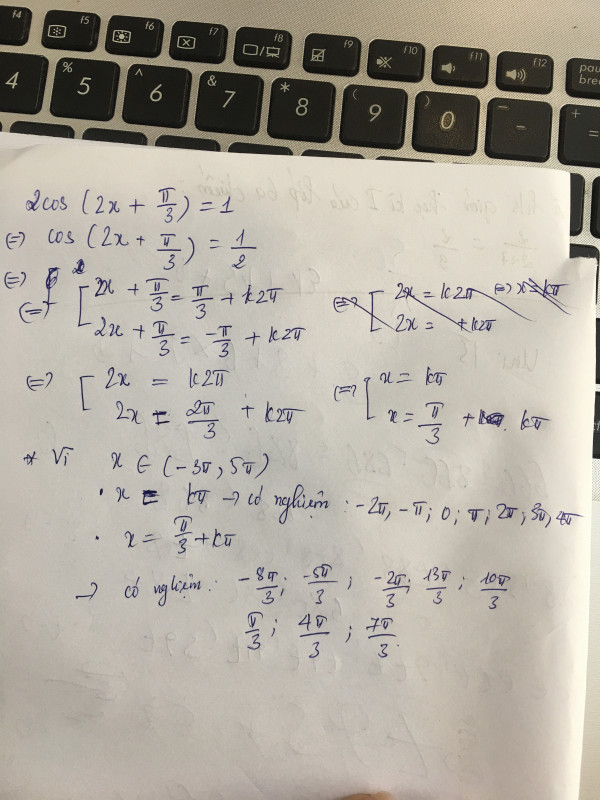 f4 f5 f6 f7 f8 f9 f10 f11 f12 pau
brea
4 % 5 ^ 6 & 7 * 8 ( 9 ) 0 - + =
2cos (2x + π/3) = 1
(=) cos (2x + π/3) = 1/2
(=)
(=) [ 2x + π/3 = π/3 + k2π
2x + π/3 = -π/3 + k2π
(=) [ 2x = k2π (=) x = kπ
2x = + k2π
(=) [ 2x = k2π
2x = 2π/3 + k2π
(=) [ x = kπ
x = π/3 + kπ
* Vì x ∈ (-3π, 5π)
· x = kπ → có nghiệm : -2π, -π; 0; π; 2π; 3π, 4π
· x = π/3 + kπ
→ có nghiệm : -8π/3; -5π/3; -2π/3; 13π/3; 10π/3
π/3; 4π/3; 7π/3.